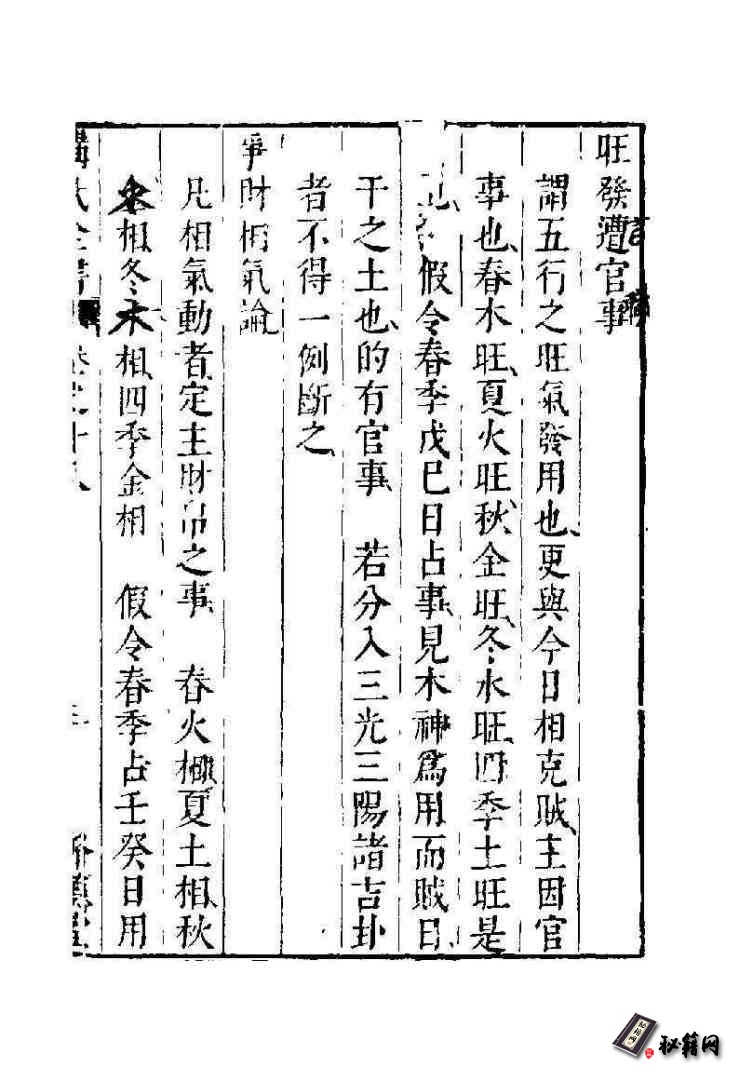 旺發遭官事
謂五行之旺氣發用也更與今日相克賊主因官
事也春木旺夏火旺秋金旺冬水旺四季土旺是
假令春季戊巳日占事見木神爲用而賊日
干之土也的有官事　若分入三光三陽諸吉卦
者不得一例斷之
爭財相氣論
凡相氣動者定主財帛之事　春火相夏土相秋
相冬木相四季金相　假令春季占壬癸日用
全書
秘籍网